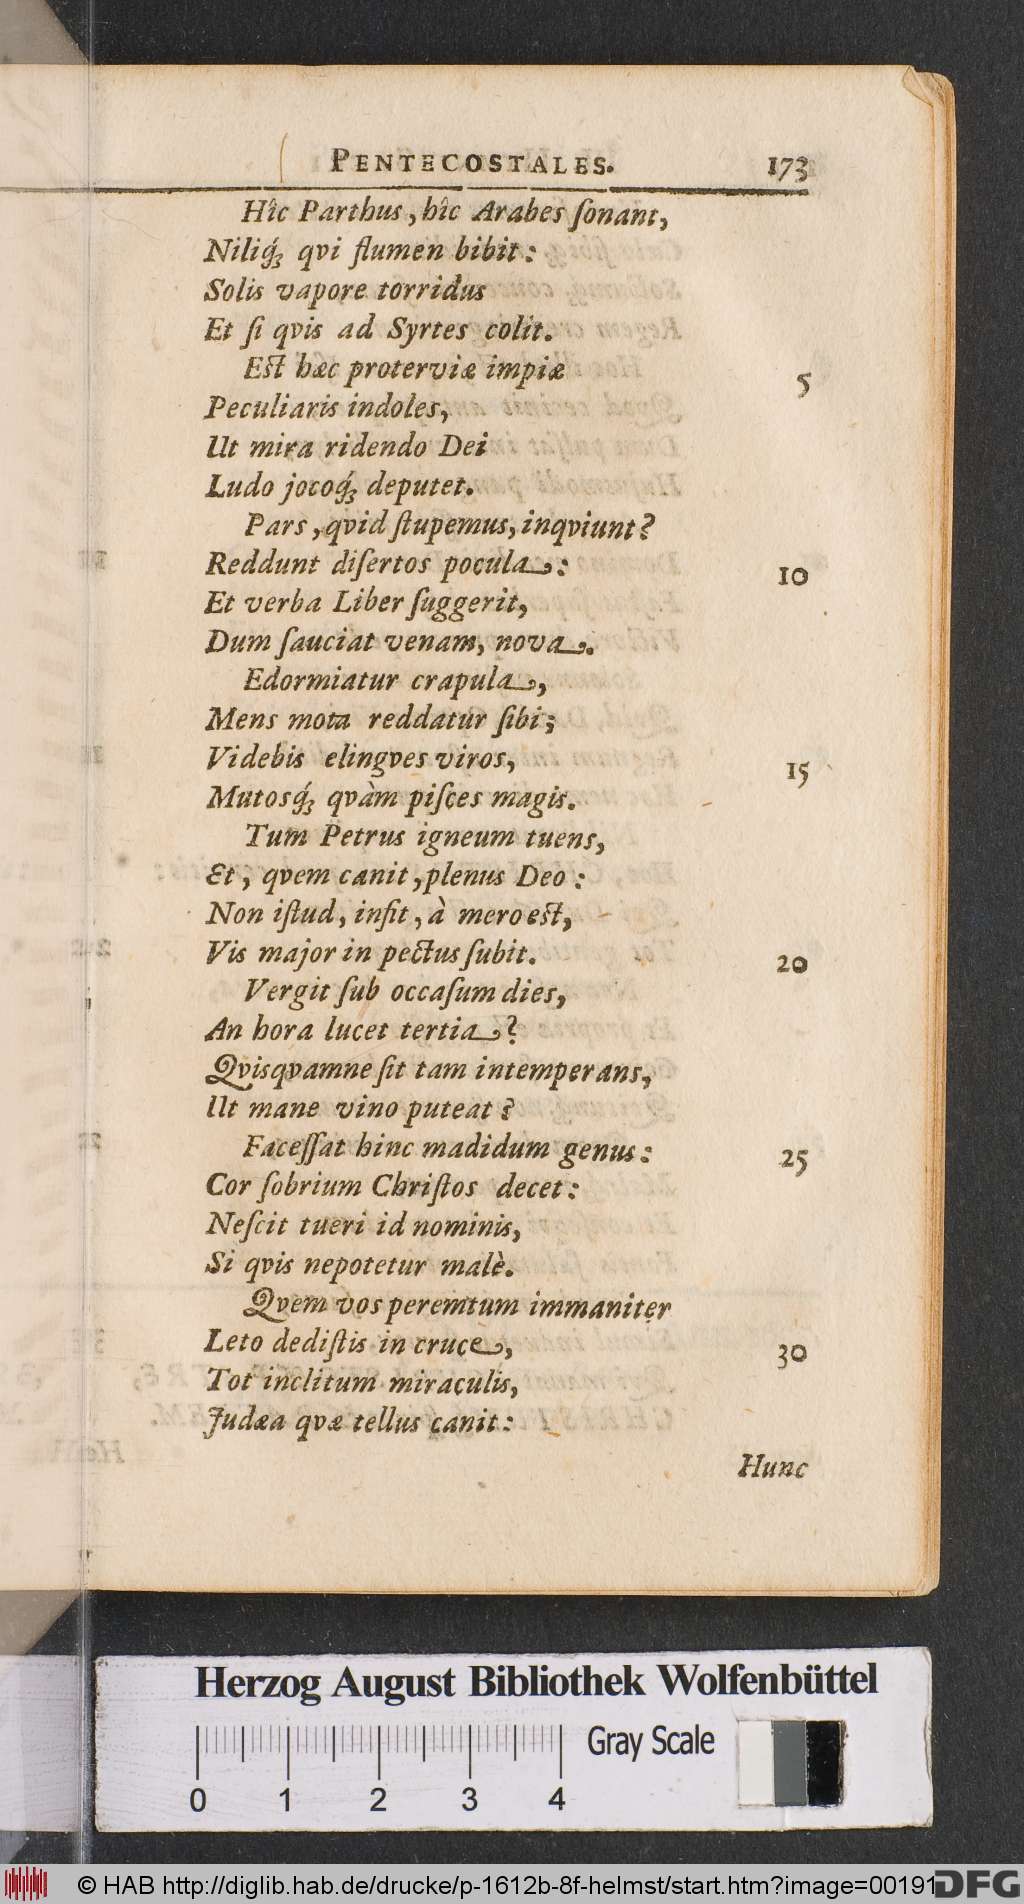 PENTECOSTALES. 173
Hîc Parthus, hîc Arabes ſonant,
Niliq́; qvi flumen bibit:
Solis vapore torridus
Et ſi qvis ad Syrtes colit.
Eſt hæc proterviæ impiæ 5
Peculiaris indoles,
Ut mira ridendo Dei
Ludo jocoq́; deputet.
Pars, qvid ſtupemus, inqviunt?
Reddunt diſertos pocula: 10
Et verba Liber ſuggerit,
Dum ſauciat venam, nova.
Edormiatur crapula,
Mens mota reddatur ſibi;
Videbis elingves viros, 15
Mutosq́; qvàm piſces magis.
Tum Petrus igneum tuens,
Et, qvem canit, plenus Deo:
Non iſtud, inſit, à mero eſt,
Vis major in pectus ſubit. 20
Vergit ſub occaſum dies,
An hora lucet tertia?
Qvisqvamne ſit tam intemperans,
Ut mane vino puteat?
Faceſſat hinc madidum genus: 25
Cor ſobrium Chriſtos decet:
Neſcit tueri id nominis,
Si qvis nepotetur malè.
Qvem vos peremtum immaniter
Leto dediſtis in cruce, 30
Tot inclitum miraculis,
Judæa qvæ tellus canit:
Hunc
Herzog August Bibliothek Wolfenbüttel
Gray Scale
0 1 2 3 4
© HAB http://diglib.hab.de/drucke/p-1612b-8f-helmst/start.htm?image=00191
DFG